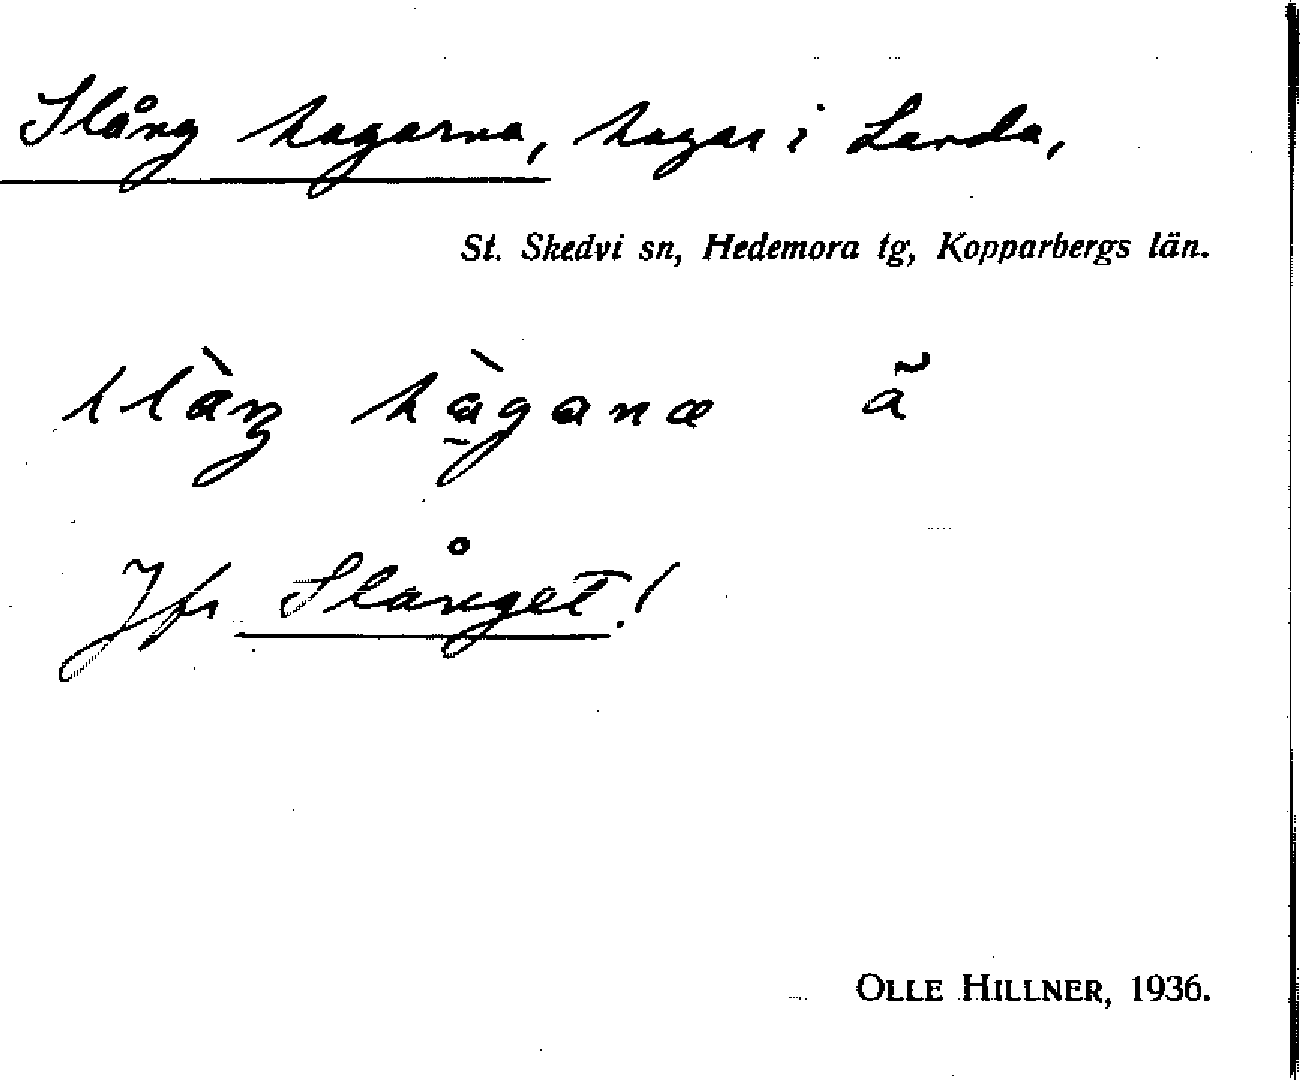 Slång hagarna, hagar i Landa,
St. Skedvi sn, Hedemora tg, Kopparbergs län.
Jfr Slånget!
OLLE HILLNER, 1936.